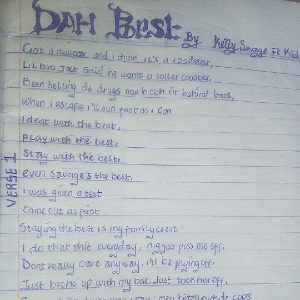 DAH BEST
By Kelly Savage Ft Kid
Got a new and I think it's a roadster,
Lil bro Just said he wants a roller coaster,
Been selling de drugs now bitch I'm behind bars,
when I escape I'll run fast as I can
I deal with the best,
PLAY with the best,
Stay with the best,
even savage's the best,
I was given a test
Came out as first
Staying the best is my family crest
I do that shit everyday, niggas piss me off,
Dont really care anyway, I'll be off
Just broke up with my bae, Just took her off,
VERSE 1